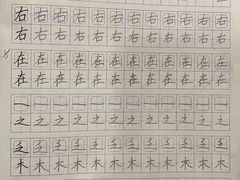 右右右右右右右右右右右右
右右右右右右右右右右右右
在在在在在在在在在在在在
在在在在在在在在在在在在
一一一一一一一一一一一一
之之之之之之之之之之之之
木木木木木木木木木木木木